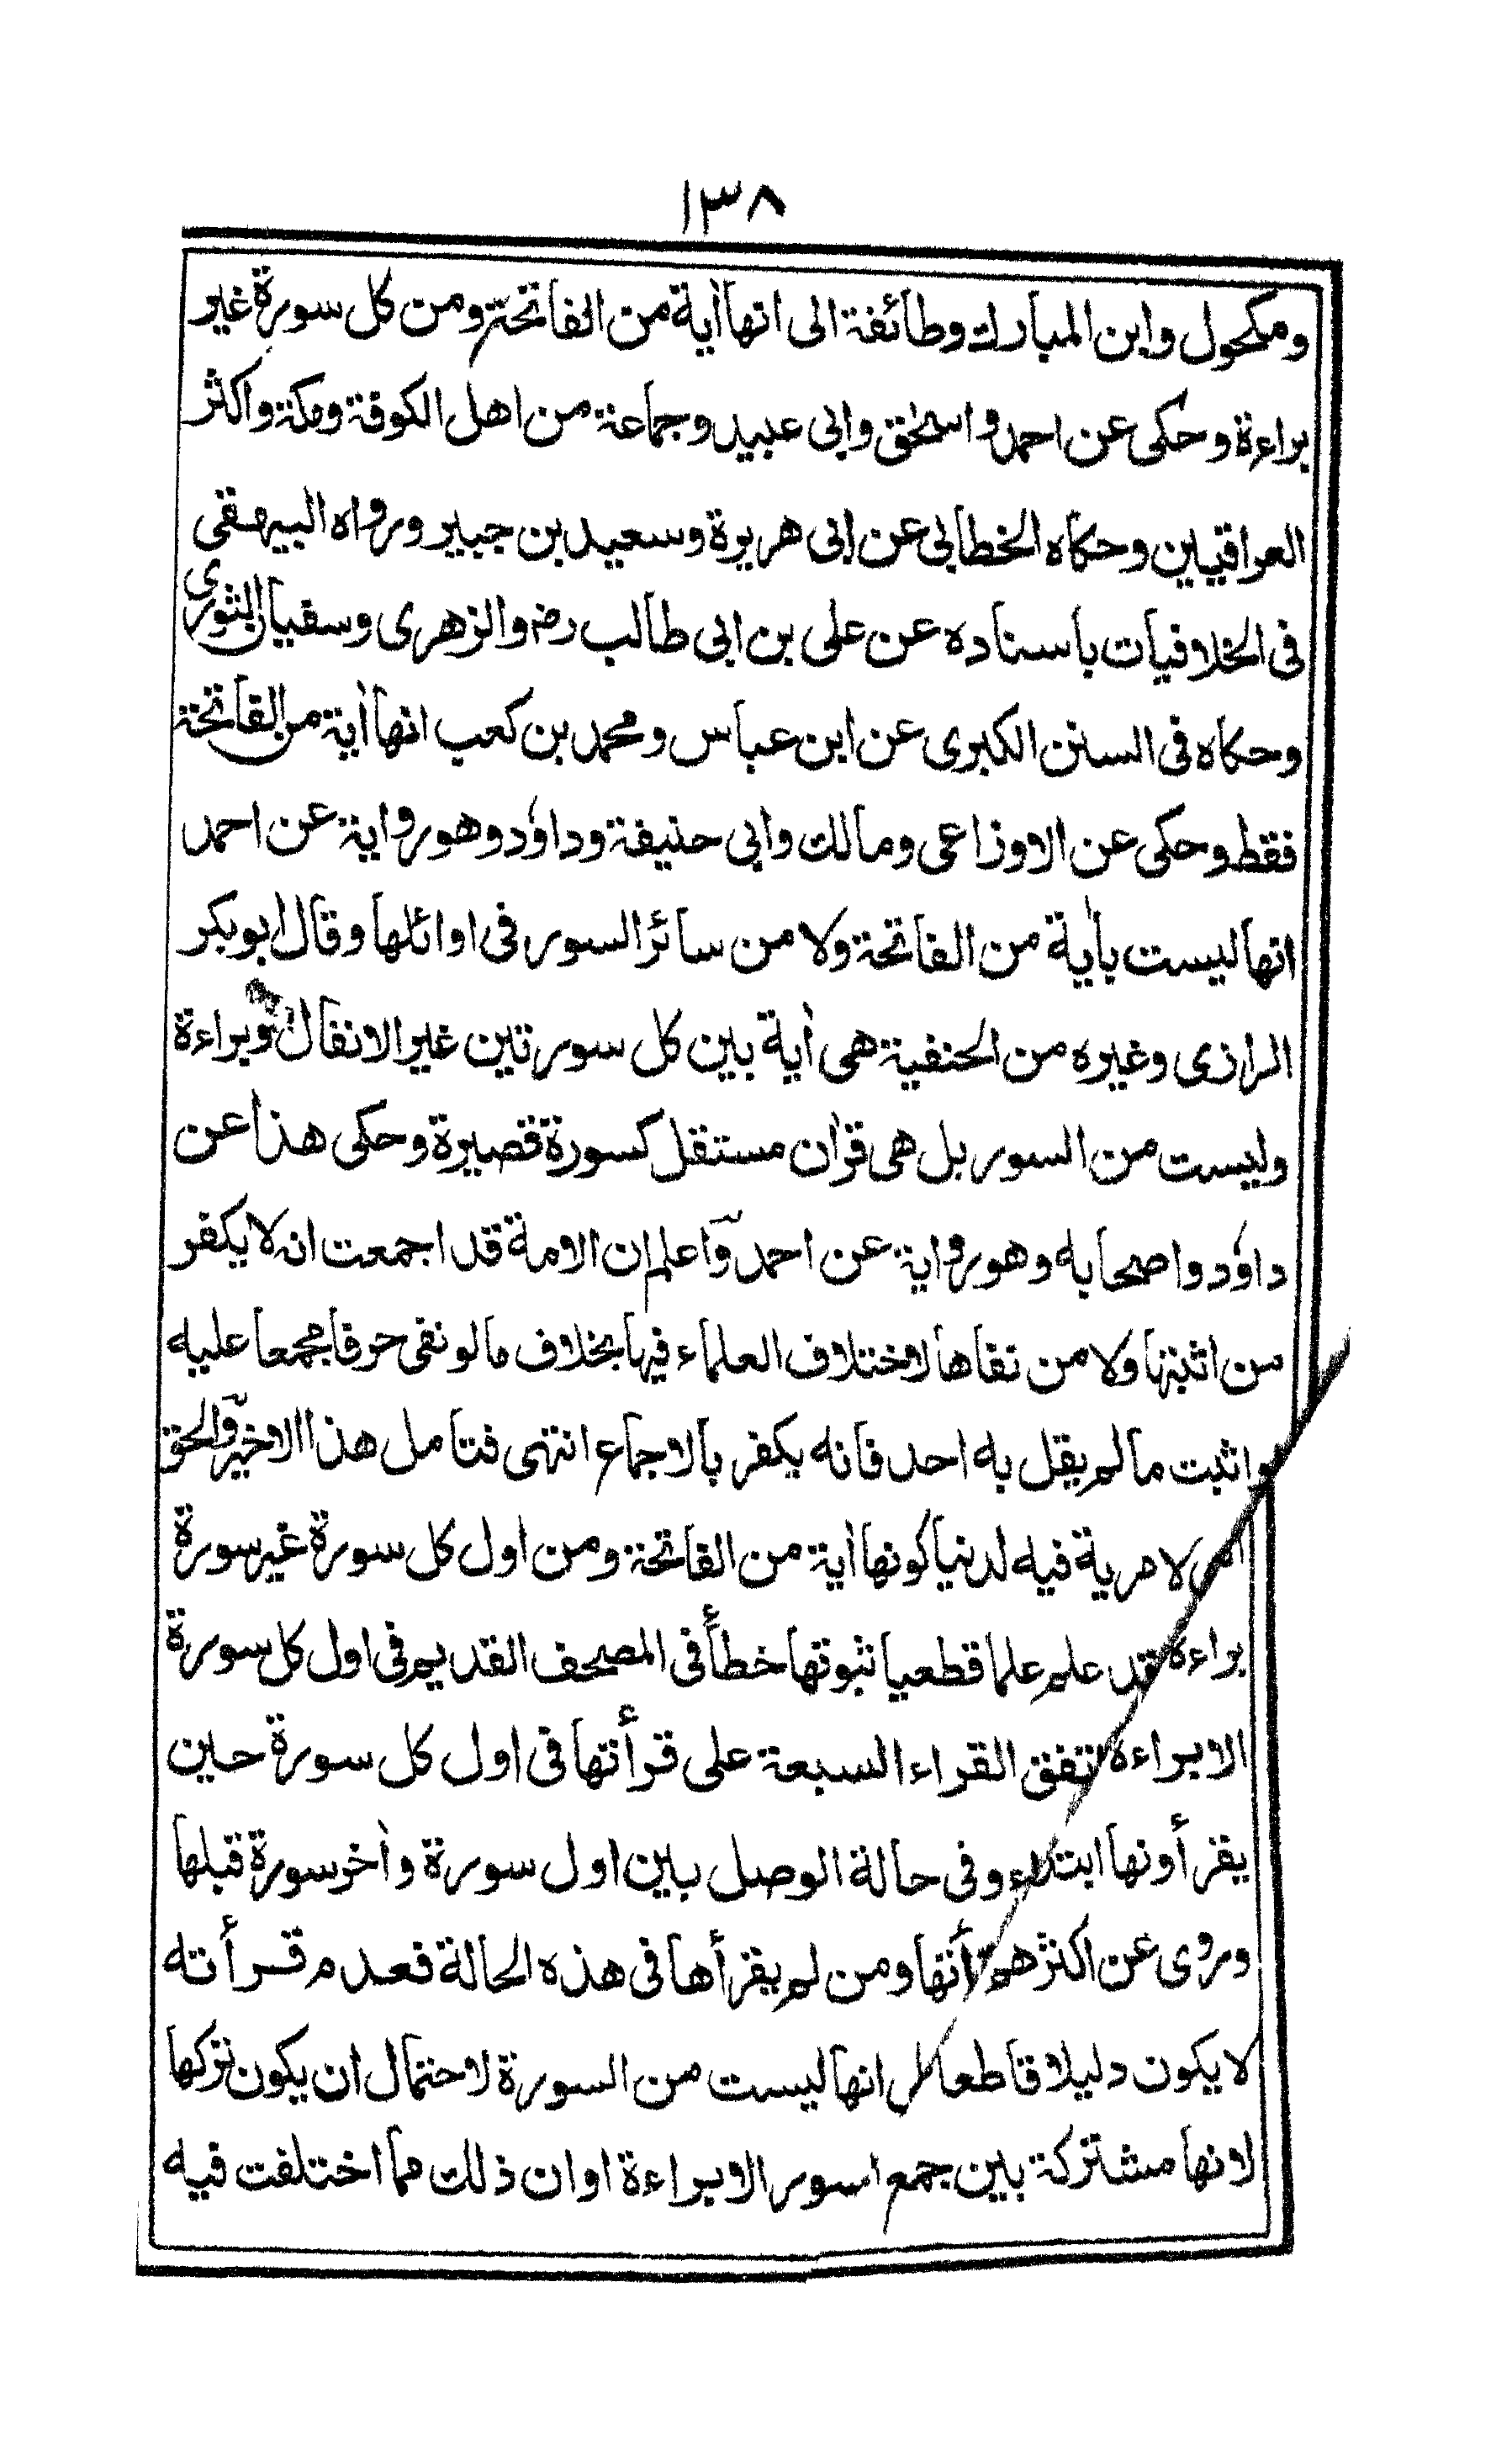 ١٣٨
ومكحول وابن المبارك وطائفة الى انها اٰية من الفاتحة ومن كل سورة غير
براءة وحكى عن احمد واسحٰق وابى عبيد وجماعة من اهل الكوفة ومكة واكثر
العراقيين وحكاه الخطابى عن ابى هريرة وسعيد بن جبير ورواه البيهقى
فى الخلافيات باسناده عن على بن ابى طالب رضـ والزهرى وسفيان الثورى
وحكاه فى السنن الكبرى عن ابن عباس ومحمد بن كعب انها اٰية من الفاتحة
فقط وحكى عن الاوزاعى ومالك وابى حنيفة وداؤد وهو رواية عن احمد
انها ليست باٰية من الفاتحة ولا من سائر السور فى اوائلها وقال ابو بكر
الرازى وغيره من الحنفية هى اٰية بين كل سورتين غير الانفال وبراءة
وليست من السور بل هى قراٰن مستقل كسورة قصيرة وحكى هذا عن
داؤد واصحابه وهو رواية عن احمد واعلم ان الامة قد اجمعت انه لا يكفر
من اثبتها ولا من نفاها لاختلاف العلماء فيها بخلاف ما لو نفى حرفا مجمعا عليه
واثبت ما لم يقل به احد فانه يكفر بالاجماع انتهى فتامل هذا الاخير والحق
لا مرية فيه لدنيا كونها اٰية من الفاتحة ومن اول كل سورة غير سورة
براءة قد علم علما قطعيا ثبوتها خطأ فى المصحف القديم فى اول كل سورة
الا براءة اتفق القراء السبعة على قرأتها فى اول كل سورة حين
يقرأونها ابتداء وفى حالة الوصل بين اول سورة واٰخر سورة قبلها
وروى عن اكثرهم أنها ومن لم يقرأها فى هذه الحالة فعدم قرأته
لا يكون دليلا قاطعا انها ليست من السورة لاحتمال ان يكون تركها
لانها مشتركة بين جمع سور الا براءة او ان ذلك مما اختلفت فيه